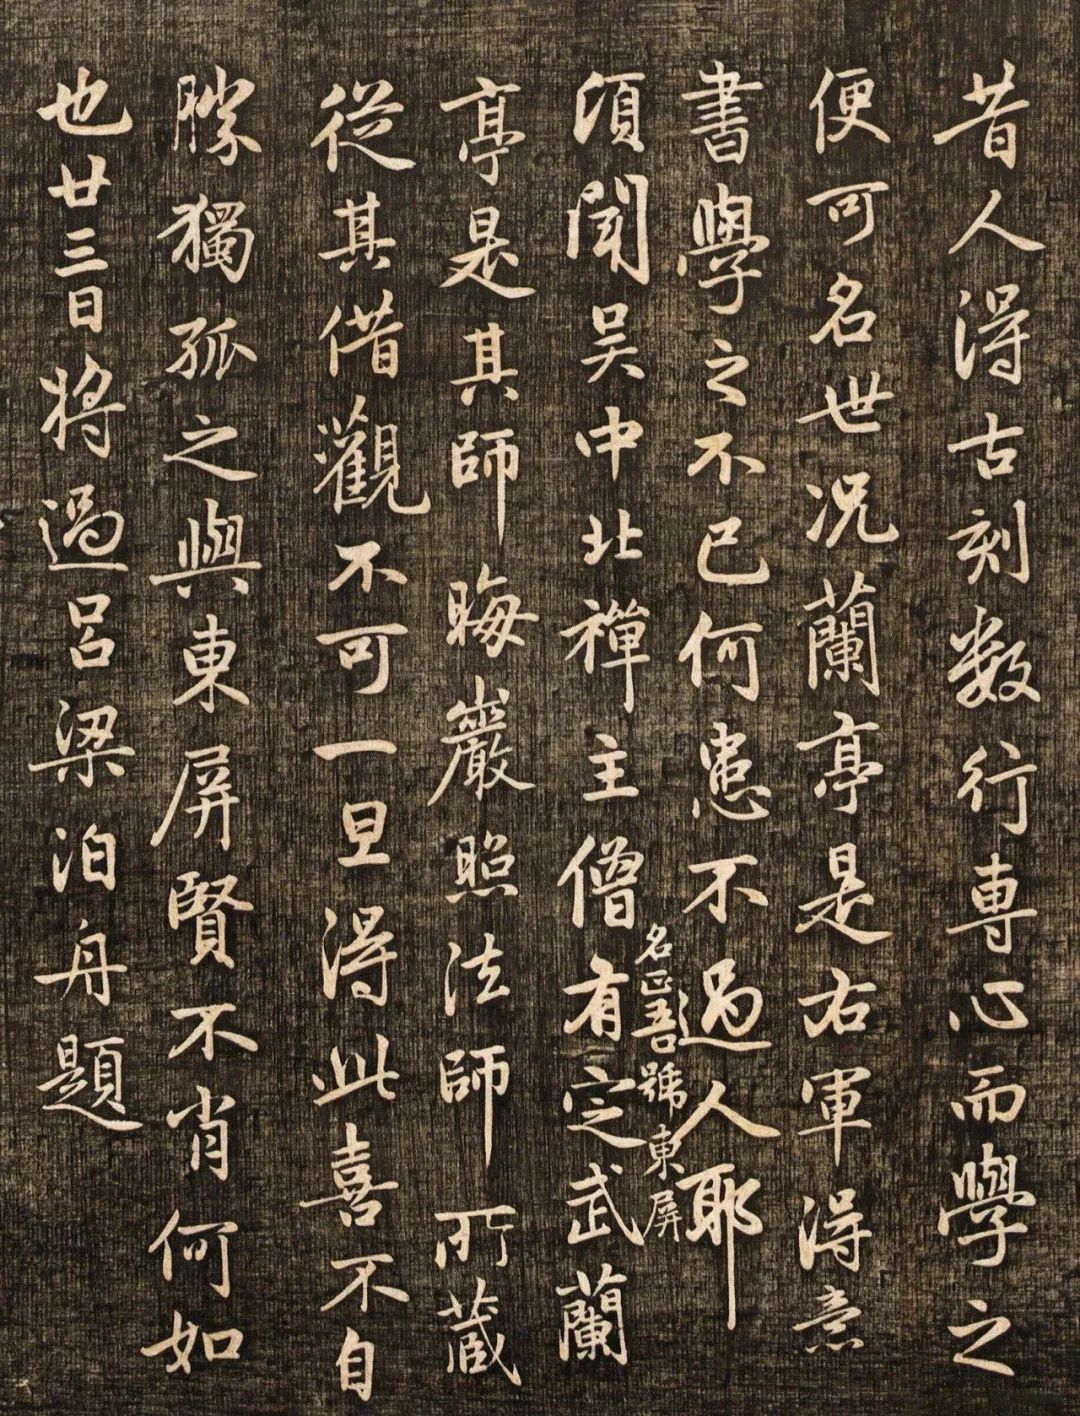 昔人得古刻数行專心而學之
便可名世况蘭亭是右軍得意
書學之不已何患不過人耶
頃聞吴中北禪主僧有定武蘭
名正吾號東屏
亭是其師晦巖照法師所蔵
從其借觀不可一旦得此喜不自
勝獨孤之與東屏賢不肖何如
也廿三日将過吕梁泊舟題